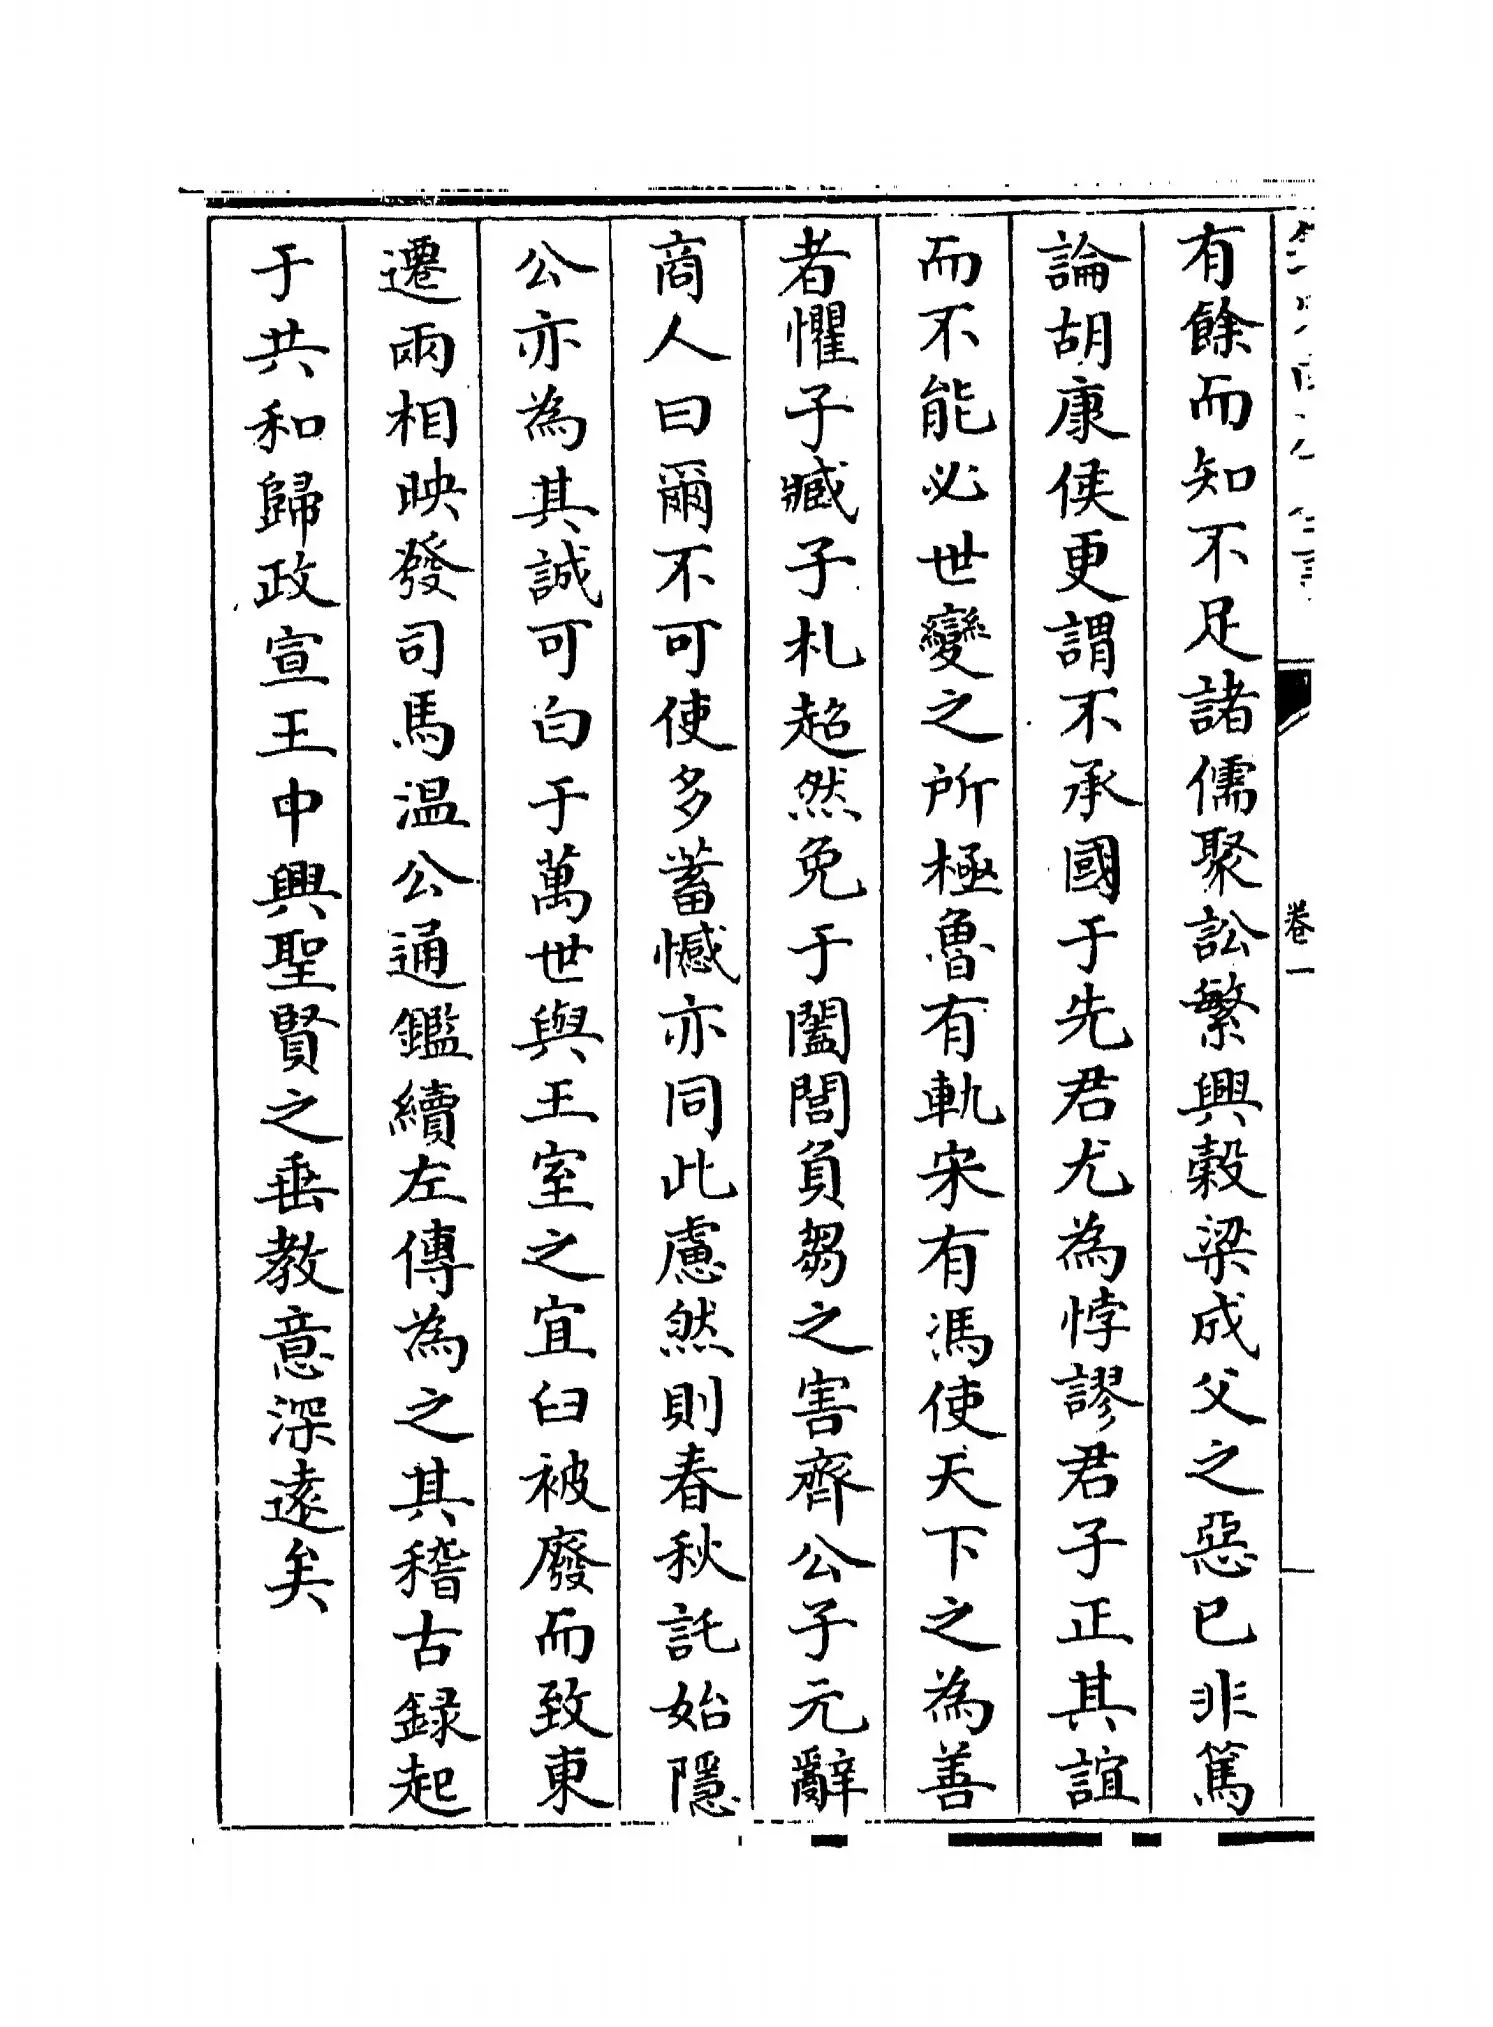 卷一
有餘而知不足諸儒聚訟繁興榖梁成父之惡已非篤
論胡康侯更謂不承國于先君尤為悖謬君子正其誼
而不能必世變之所極魯有軌宋有馮使天下之為善
者懼子臧子札超然免于闔閭負芻之害齊公子元辭
商人曰爾不可使多蓄憾亦同此慮然則春秋託始隱
公亦為其誠可白于萬世與王室之宜臼被廢而致東
遷兩相映發司馬温公通鑑續左傳為之其稽古録起
于共和歸政宣王中興聖賢之垂教意深遠矣